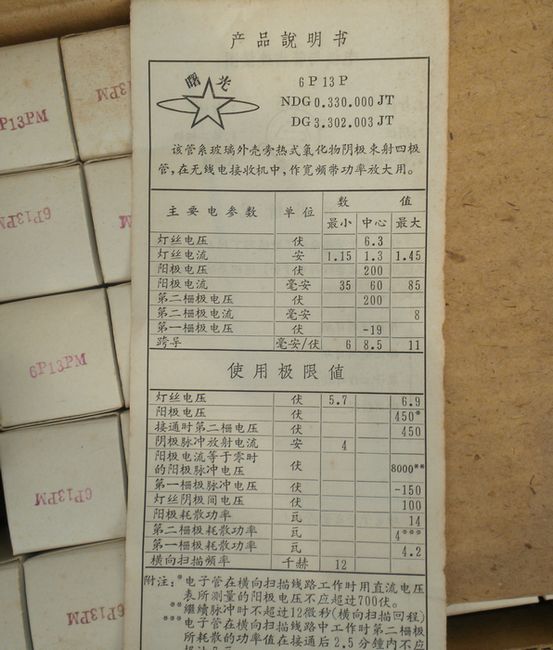 产品說明书
曙光
6P13P
NDG0.330.000JT
DG3.302.003JT
该管系玻璃外壳旁热式氧化物阴极束射四极
管，在无线电接收机中，作宽频带功率放大用。
主要电参数 单位 数值
最小 中心 最大
灯丝电压 伏 6.3
灯丝电流 安 1.15 1.3 1.45
阳极电压 伏 200
阳极电流 毫安 35 60 85
第二栅极电压 伏 200
第二栅极电流 毫安 8
第一栅极电压 伏 -19
跨导 毫安/伏 6 8.5 11
使用极限值
灯丝电压 伏 5.7 6.9
阳极电压 伏 450*
接通时第二栅电压 伏 450
阴极脉冲放射电流 安 4
阳极电流等于零时
的阳极脉冲电压 伏 8000**
第一栅极脉冲电压 伏 -150
灯丝阴极间电压 伏 100
阳极耗散功率 瓦 14
第二栅极耗散功率 瓦 4***
第一栅极耗散功率 瓦 4.2
横向扫描频率 千赫 12
附注：*电子管在横向扫描线路工作时用直流电压
表所测量的阳极电压不应超过700伏。
**继续脉冲时不超过12微秒(横向扫描回程)
***电子管在横向扫描线路中工作时第二栅极
所耗散的功率值在接通后2.5分鐘内不应
6P13PM
6P13PM
6P13PM
6P13PM
6P13PM
6P13PM